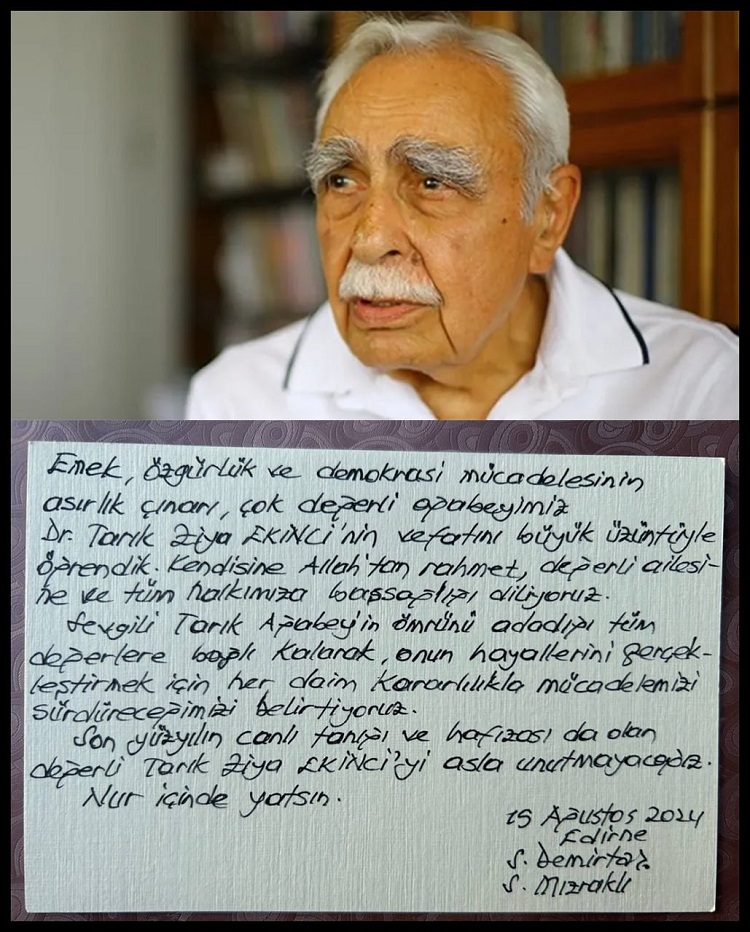 Emek, özgürlük ve demokrasi mücadelesinin
asırlık çınarı, çok değerli ağabeyimiz
Dr. Tarık Ziya EKİNCİ'nin vefatını büyük üzüntüyle
öğrendik. Kendisine Allah'tan rahmet, değerli ailesi-
ne ve tüm halkımıza başsağlığı diliyoruz.
Sevgili Tarık Ağabey'in ömrünü adadığı tüm
değerlere bağlı kalarak, onun hayallerini gerçek-
leştirmek için her daim kararlılıkla mücadelemizi
sürdüreceğimizi belirtiyoruz.
Son yüzyılın canlı tanığı ve hafızası da olan
değerli Tarık Ziya EKİNCİ'yi asla unutmayacağız.
Nur içinde yatsın.
15 Ağustos 2024
Edirne
S. Demirtaş
S. Mızraklı